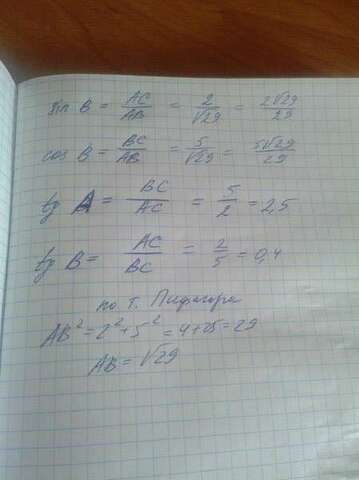 sin B = AC/AB = 2/√29 = 2√29/29
cos B = BC/AB = 5/√29 = 5√29/29
tg A = BC/AC = 5/2 = 2,5
tg B = AC/BC = 2/5 = 0,4
по т. Пифагора
AB² = 2² + 5² = 4 + 25 = 29
AB = √29